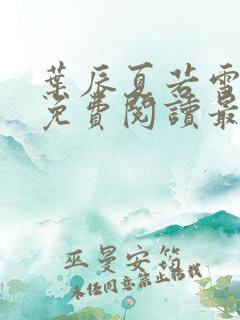 葉辰夏若雪
免費閱讀最
巫曼安筠
未經同意禁止轉載